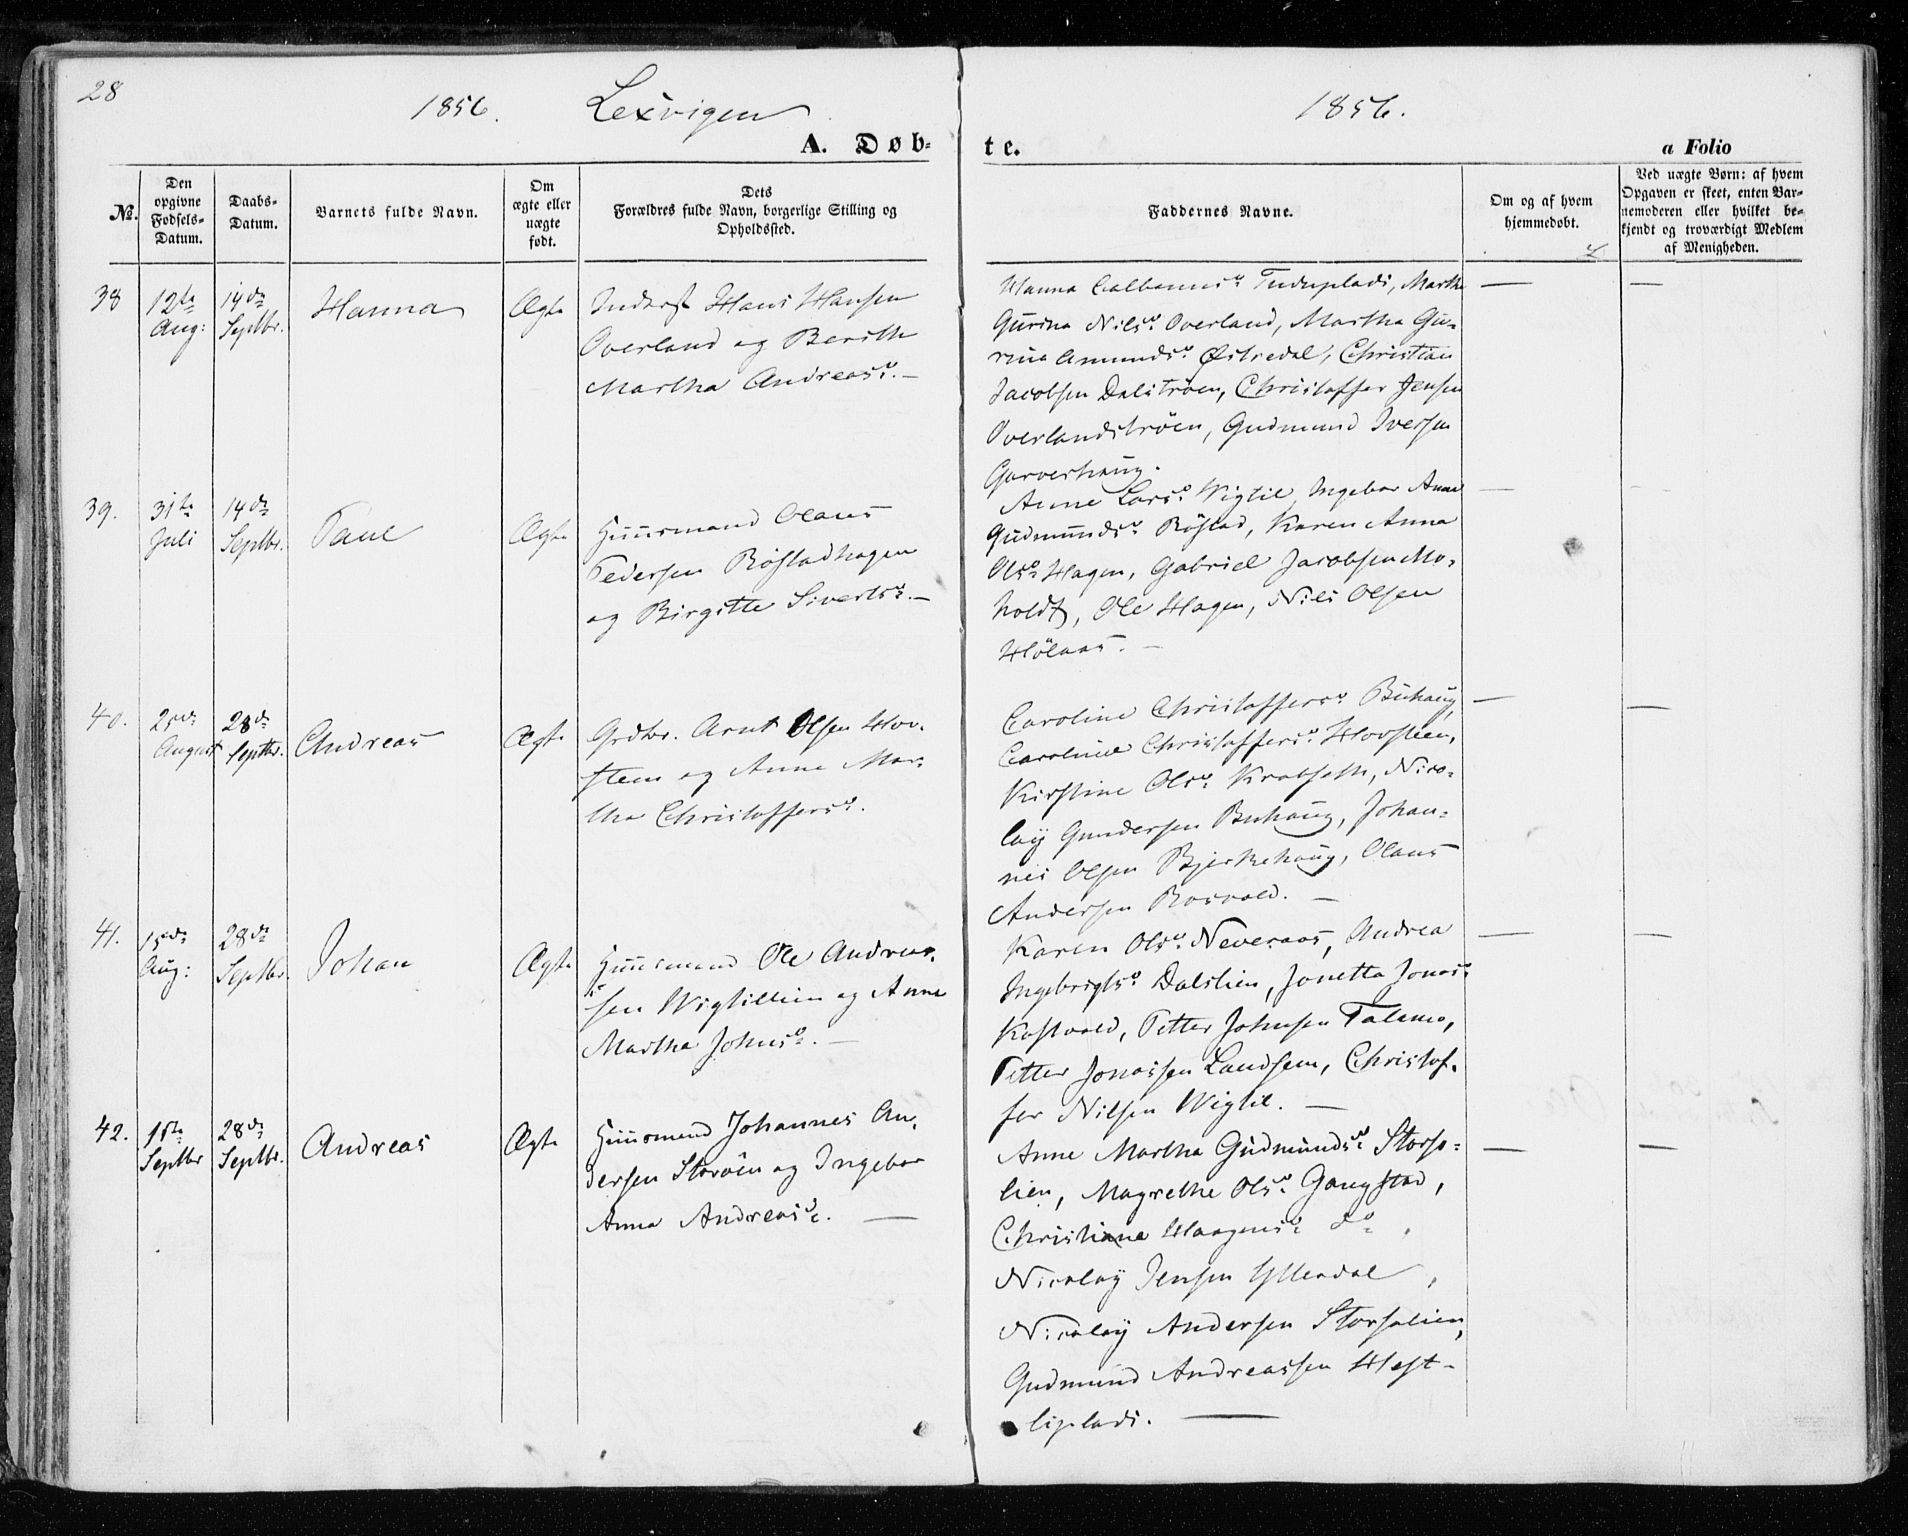 28
1856. Lexvigen 1856.
A. Døb-
te.
a Folio
No.
Den opgivne Fødsels-Datum.
Daabs-Datum.
Barnets fulde Navn.
Om ægte eller uægte født.
Dets Forældres fulde Navn, borgerlige Stilling og Opholdssted.
Faddernes Navne.
Om og af hvem hjemmedøbt.
Ved uægte Børn: af hvem Opgaven er skeet, enten Barnemoderen eller hvilket bekjendt og troværdigt Medlem af Menigheden.
38
12te Aug:
14de Septbr.
Hanna
Ægte
Inderst Hans Hansen
Overland og Berith
Martha Andreasd. —
Hanna Martha
Gurina Nilsd. Overland, Martha Gu-
rina Amundsd. Østredal, Christian
Jacobsen Dalströen, Christoffer Jensen
Overlandströen, Gudmund Iversen
Garverhaug.
—
—
39.
31te Juli
14de Septbr.
Paul
Ægte
Huusmand Olaus
Pedersen Röstadhagen
og Birgitte Sivertsd. —
Anne Larsd. Vigtil, Ingebor Anna
Gudmundsd. Röstad, Karen Anna
Olsd. Hagen, Gabriel Jacobsen Mo-
holdt, Ole Hagen, Nils Olsen
Hölaas. —
—
—
40.
25de August
28de Septbr.
Andreas
Ægte
Grdbr. Arnt Olsen Hov-
steen og Anne Mar-
tha Christoffersd.
Caroline Christoffersd. Buhaug,
Caroline Christoffersd. Hovsteen,
Kirstine Olsd. Krabseth, Nico-
lay Gundersen Buhaug, Johan-
nes Olsen Bjerkehaug, Olaus
Andersen Rosvold. —
—
—
41.
15de Aug:
28de Septbr.
Johan
Ægte
Huusmand Ole Andreas-
sen Wigtillien og Anne
Martha Johnsd. —
Karen Olsd. Neveraas, Andrea
Ingebrigtsd. Dalslien, Jonetta Jonasd.
Kostvold, Petter Johnsen Falemo,
Petter Jonassen Landsem, Christof-
fer Nilsen Wigtil. —
—
—
42.
1ste Septbr
28de Septbr.
Andreas
Ægte
Huusmand Johannes An-
dersen Storöen og Ingebor
Anna Andreasd. —
Anne Martha Gudmundsd. Storso-
lien, Magrethe Olsd. Gangstad,
Christiane Haagensd. do.,
Nicolay Jensen Ytterdal,
Nicolay Andersen Storsolien,
Gudmund Andreassen Hest-
liplads. —
—
—